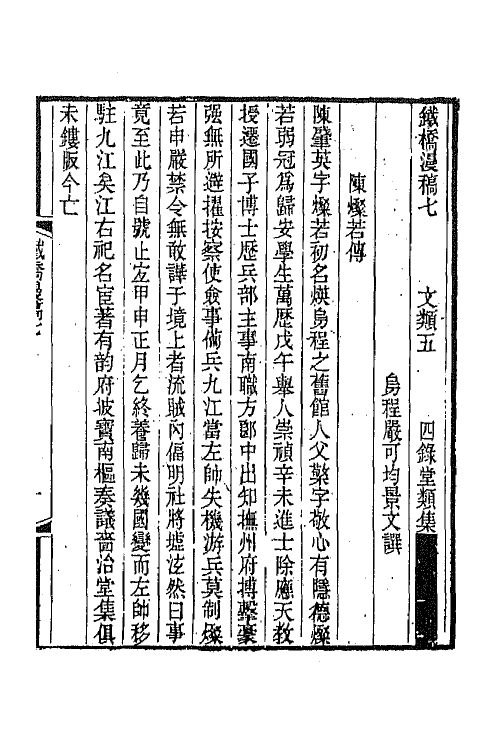 鐵橋漫稿七　文類五　四錄堂類集
烏程嚴可均景文譔
陳燦若傳
陳肇英字燦若初名煐烏程之舊館人父繁字敬心有隱德燦
若弱冠爲歸安學生萬歷戊午舉人崇禎辛未進士除應天教
授遷國子博士歷兵部主事南職方郎中出知撫州府搏擊豪
强無所避擢按察使僉事備兵九江當左帥失機游兵莫制燦
若申嚴禁令無敢譁于境上者流賊內偪明社將墟泫然曰事
竟至此乃自號止宐甲申正月乞終養歸未幾國變而左帥移
駐九江矣江右祀名宦著有韵府坡寶南樞奏議嗇治堂集俱
未鏤版今亡
鐵橋漫稿七
一